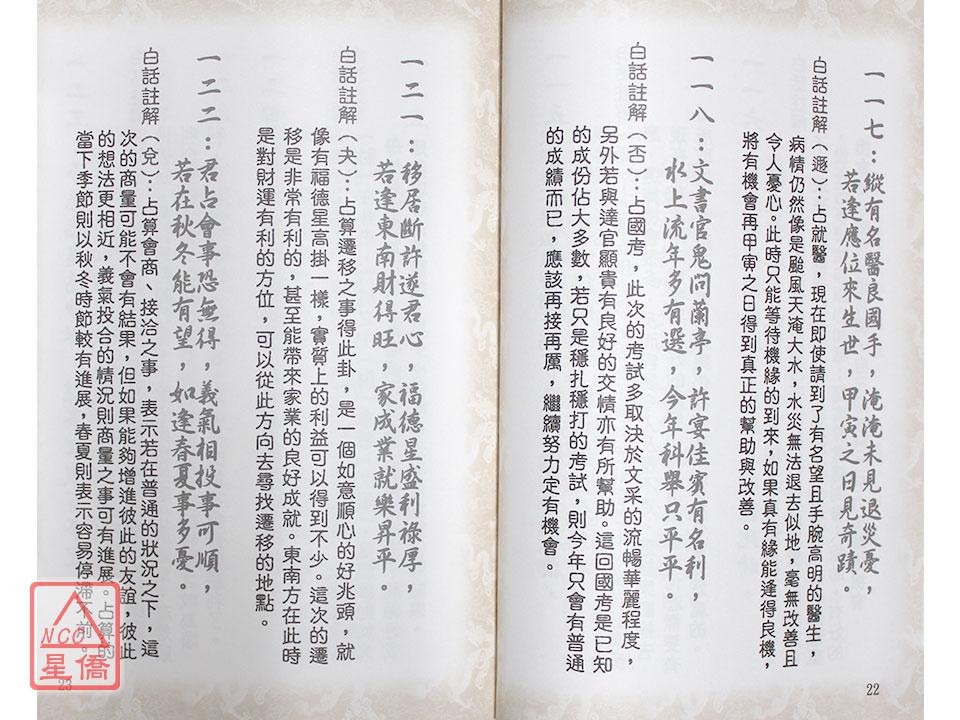 一一七：縱有名醫良國手，淹淹未見退災憂，
若逢應位來生世，甲寅之日見奇蹟。
白話註解（遯）：占就醫，現在即使請到了有名望且手腕高明的醫生，
病情仍然像是颱風天淹大水，水災無法退去似地，毫無改善且
令人憂心。此時只能等待機緣的到來，如果真有緣能逢得良機，
將有機會再甲寅之日得到真正的幫助與改善。
一一八：文書官鬼問蘭亭，許宴佳賓有名利，
水上流年多有選，今年科舉只平平。
白話註解（否）：占國考，此次的考試多取決於文采的流暢華麗程度，
另外若與達官顯貴有良好的交情亦有所幫助。這回國考是已知
的成份佔大多數，若只是穩扎穩打的考試，則今年只會有普通
的成績而已，應該再接再厲，繼續努力定有機會。
22
一二一：移居斷許遂君心，福德星盛利祿厚，
若逢東南財得旺，家成業就樂昇平。
白話註解（夬）：占算遷移之事得此卦，是一個如意順心的好兆頭，就
像有福德星高掛一樣，實質上的利益可以得到不少。這次的遷
移是非常有利的，甚至能帶來家業的良好成就。東南方在此時
是對財運有利的方位，可以從此方向去尋找遷移的地點。
一二二：君占會事恐無得，義氣相投事可順，
若在秋冬能有望，如逢春夏事多憂。
白話註解（兌）：占算會商、接洽之事，表示若在普通的狀況之下，這
次的商量可能不會有結果，但如果能夠增進彼此的友誼，彼此
的想法更相近，義氣投合的情況則商量之事可有進展。占算的
當下季節則以秋冬時節較有進展，春夏則表示容易停滯不前。
23
NCC
星僑